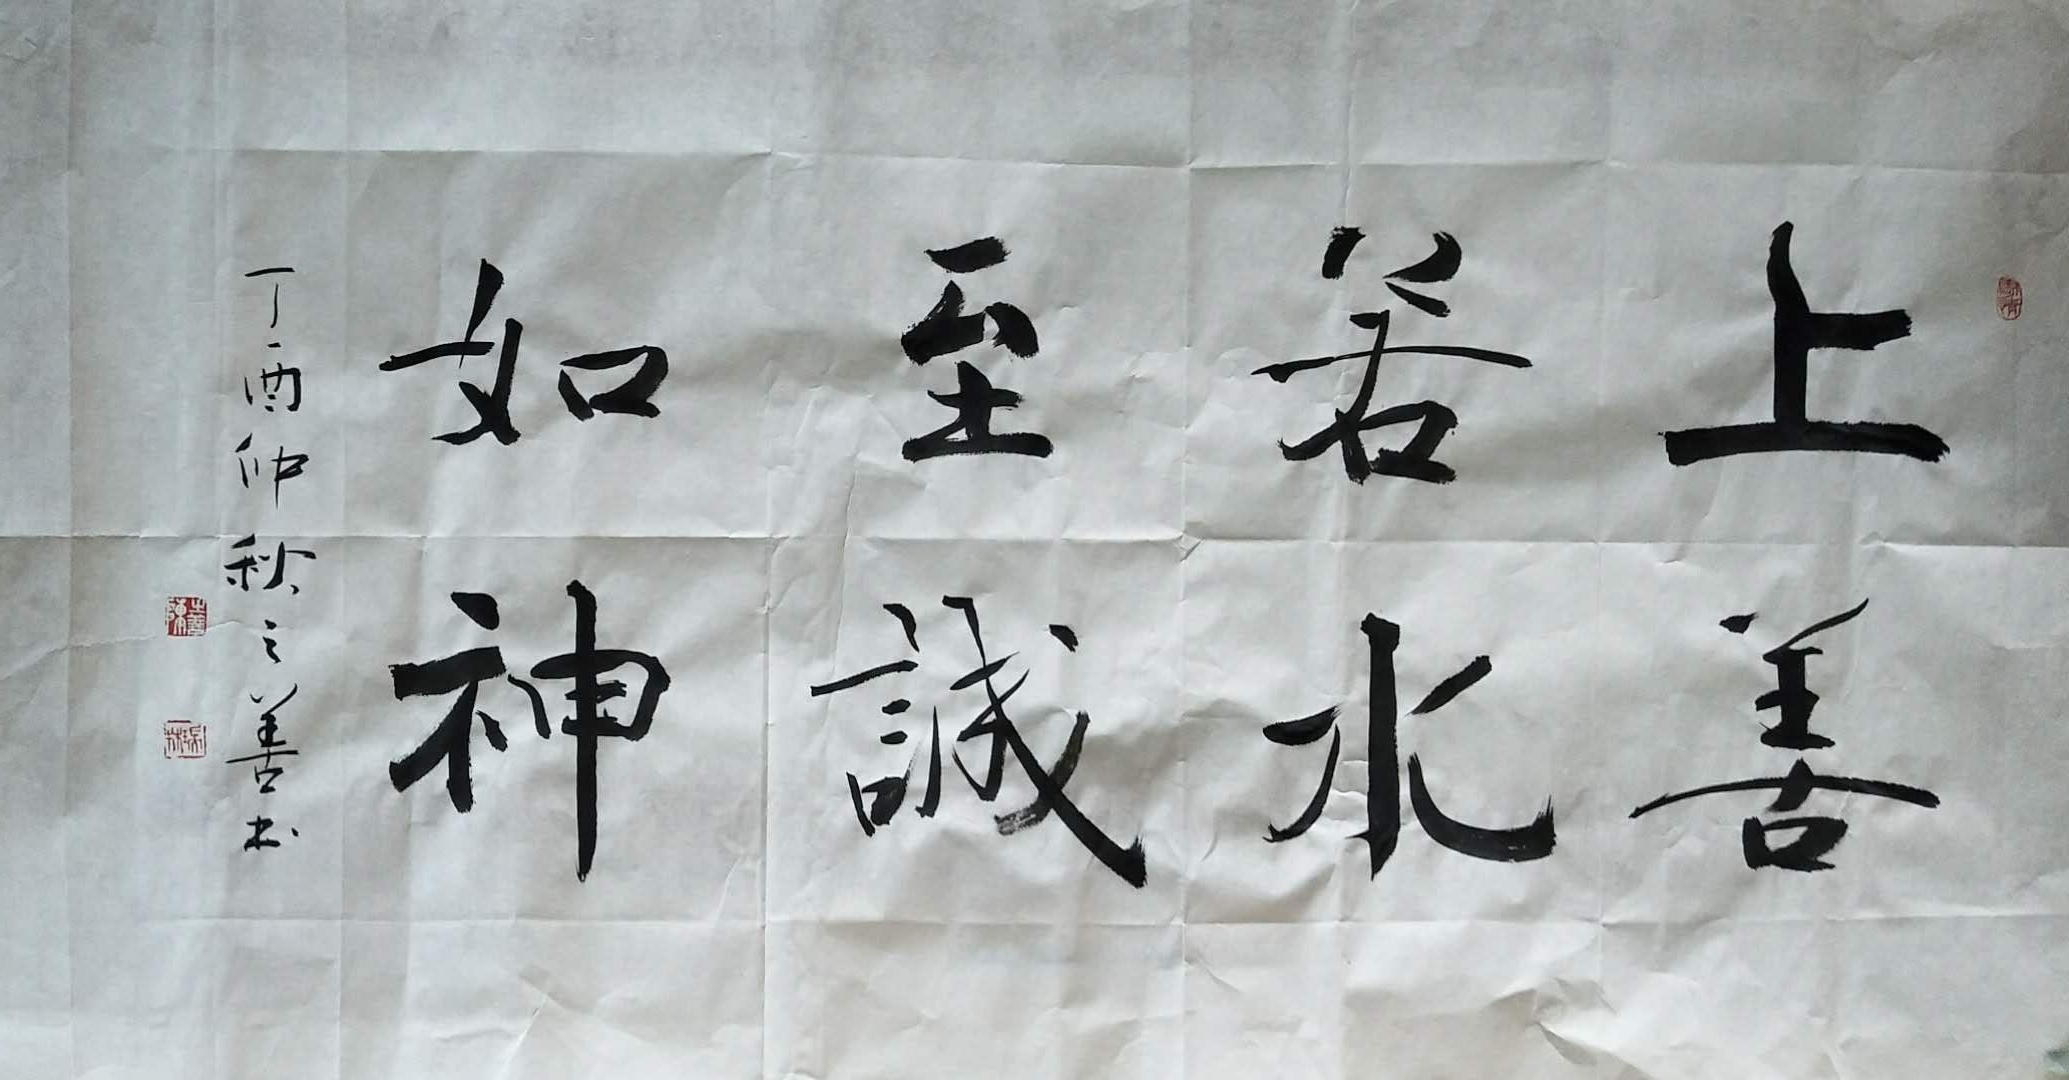 上善
若水
至誠
如神
丁酉仲秋之善书